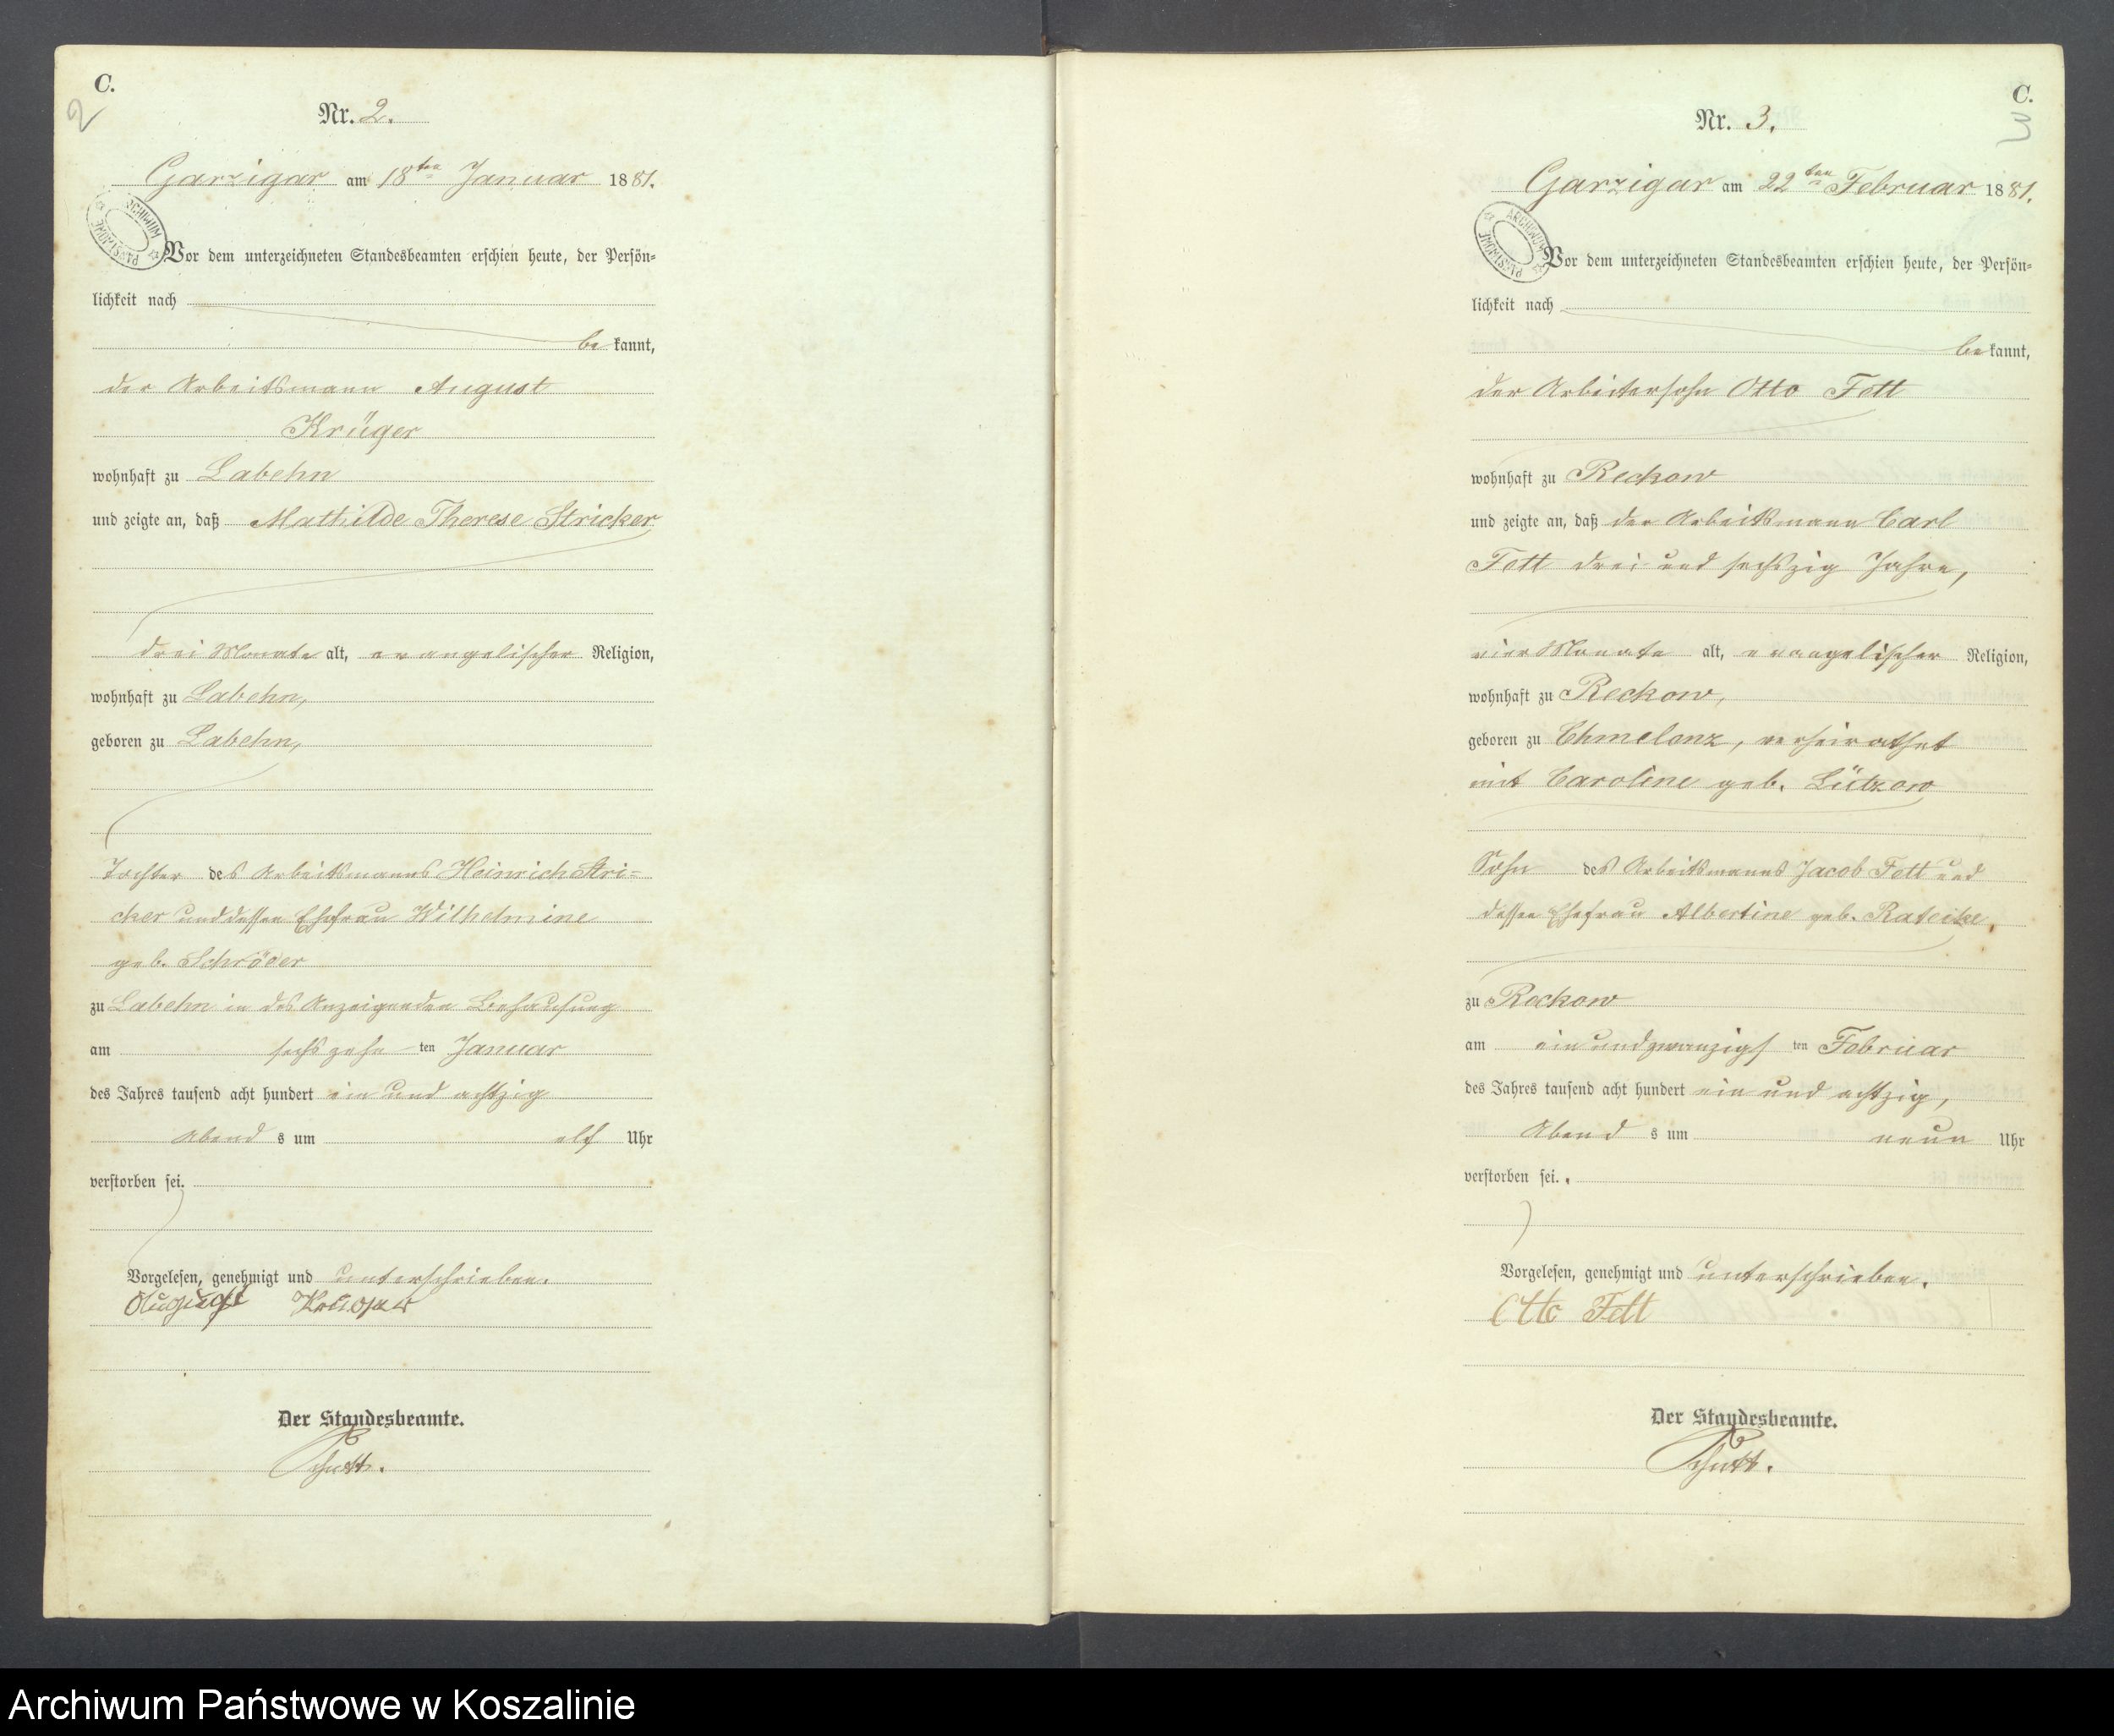 C.
2
Nr. 2.
Garzigar am 18ten Januar 1881.
ARCHIWUM PAŃSTWOWE
Vor dem unterzeichneten Standesbeamten erschien heute, der Persön=
lichkeit nach
be kannt,
der Arbeitsmann August
Krüger
wohnhaft zu Labehn
und zeigte an, daß Mathilde Therese Stricker
drei Monate alt, evangelischer Religion,
wohnhaft zu Labehn,
geboren zu Labehn,
Tochter des Arbeitsmanns Heinrich Stri=
cker und dessen Ehefrau Wilhelmine
geb. Schröder
zu Labehn in des Anzeigenden Behausung
am sechszehn ten Januar
des Jahres tausend acht hundert ein und achtzig
Abend s um elf Uhr
verstorben sei.
Vorgelesen, genehmigt und unterschrieben.
August Krüger
Der Standesbeamte.
C.
3
Nr. 3.
Garzigar am 22ten Februar 1881.
ARCHIWUM PAŃSTWOWE
Vor dem unterzeichneten Standesbeamten erschien heute, der Persön=
lichkeit nach
be kannt,
der Arbeitersohn Otto Fett
wohnhaft zu Reckow
und zeigte an, daß der Arbeitsmann Carl
Fett drei und sechszig Jahre,
vier Monate alt, evangelischer Religion,
wohnhaft zu Reckow,
geboren zu Chmelenz, verheirathet
mit Caroline geb. Lützow
Sohn des Arbeitsmanns Jacob Fett und
dessen Ehefrau Albertine geb. Rateike,
zu Reckow
am ein und zwanzigs ten Februar
des Jahres tausend acht hundert ein und achtzig,
Abend s um neun Uhr
verstorben sei.
Vorgelesen, genehmigt und unterschrieben.
Otto Fett
Der Standesbeamte.
Archiwum Państwowe w Koszalinie